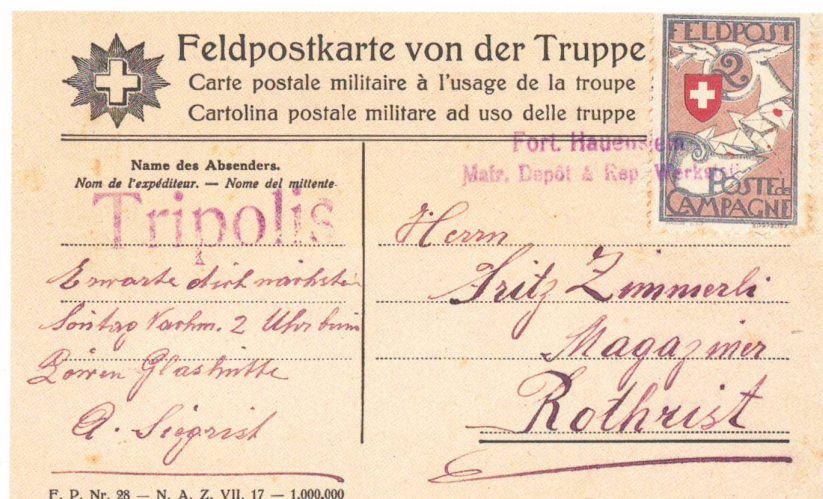 Feldpostkarte von der Truppe
Carte postale militaire à l'usage de la troupe
Cartolina postale militare ad uso delle truppe
FELDPOST
2
POSTE de
CAMPAGNE
Fort. Hauenstein
Matr. Depôt & Rep. Werkst.
Name des Absenders.
Nom de l'expéditeur. — Nome del mittente
Tripolis
Erwarte dich nächsten
Sontag Nachm. 2 Uhr beim
Löwen Glashütte
A. Siegrist
Herrn
Fritz Zimmerli
Magaziner
Rothrist
F. P. Nr. 28 — N. A. Z. VII. 17 — 1,000,000